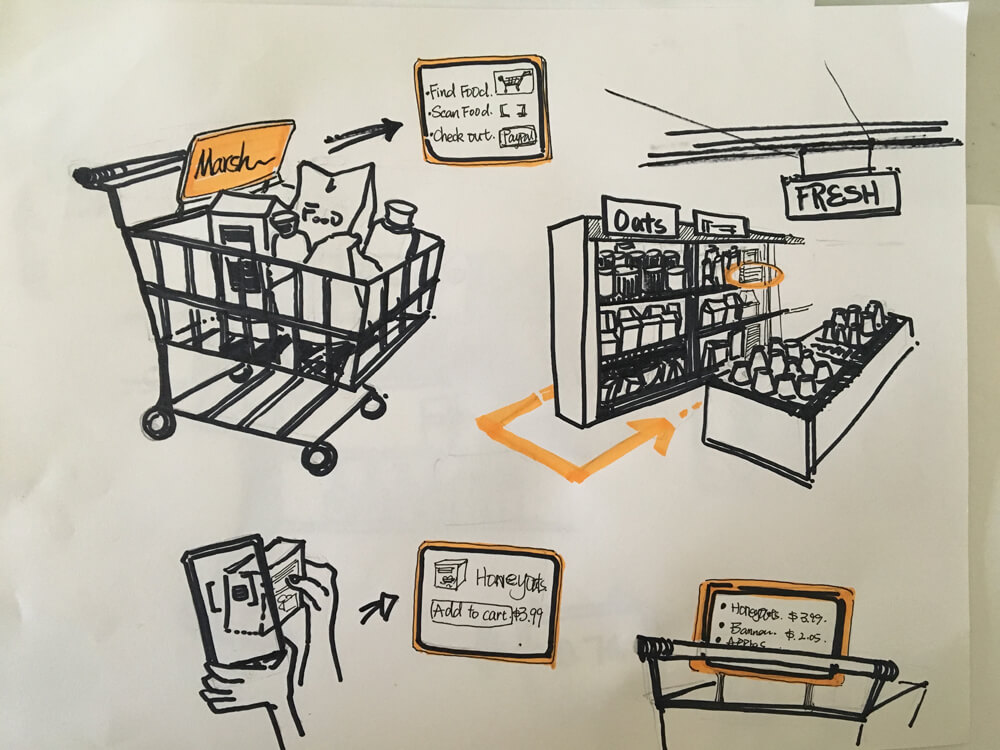 Marsh
FOOD
•Find Food.
•Scan Food. [ ]
•Check out. PayPal
FRESH
Oats
Honeyoats.
Add to cart $3.99
• Honeyoats. $3.99.
• Banna $.2.05.
• Apples